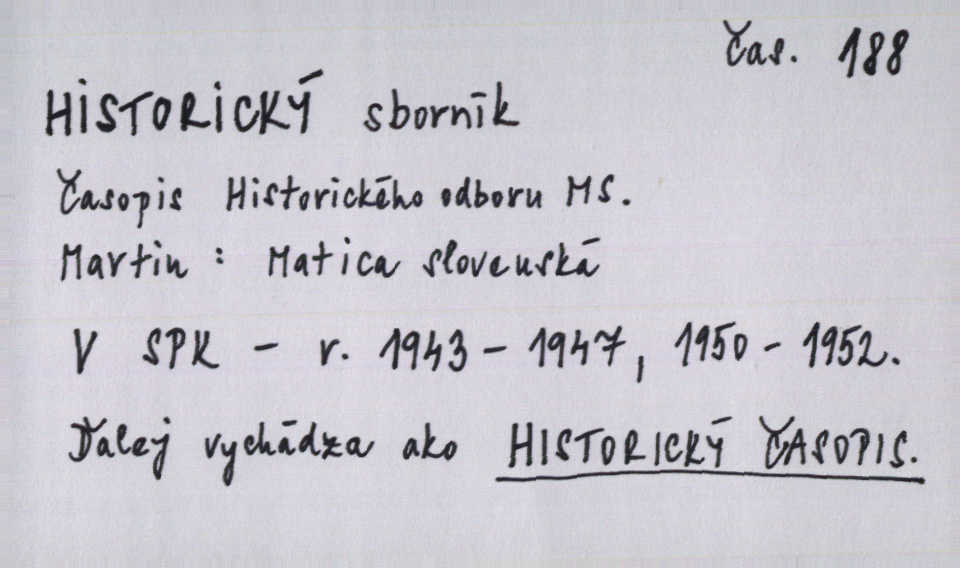 Čas. 188
HISTORICKÝ sborník
Časopis Historického odboru MS.
Martin : Matica slovenská
V SPK - r. 1943 - 1947, 1950 - 1952.
Ďalej vychádza ako HISTORICKÝ ČASOPIS.